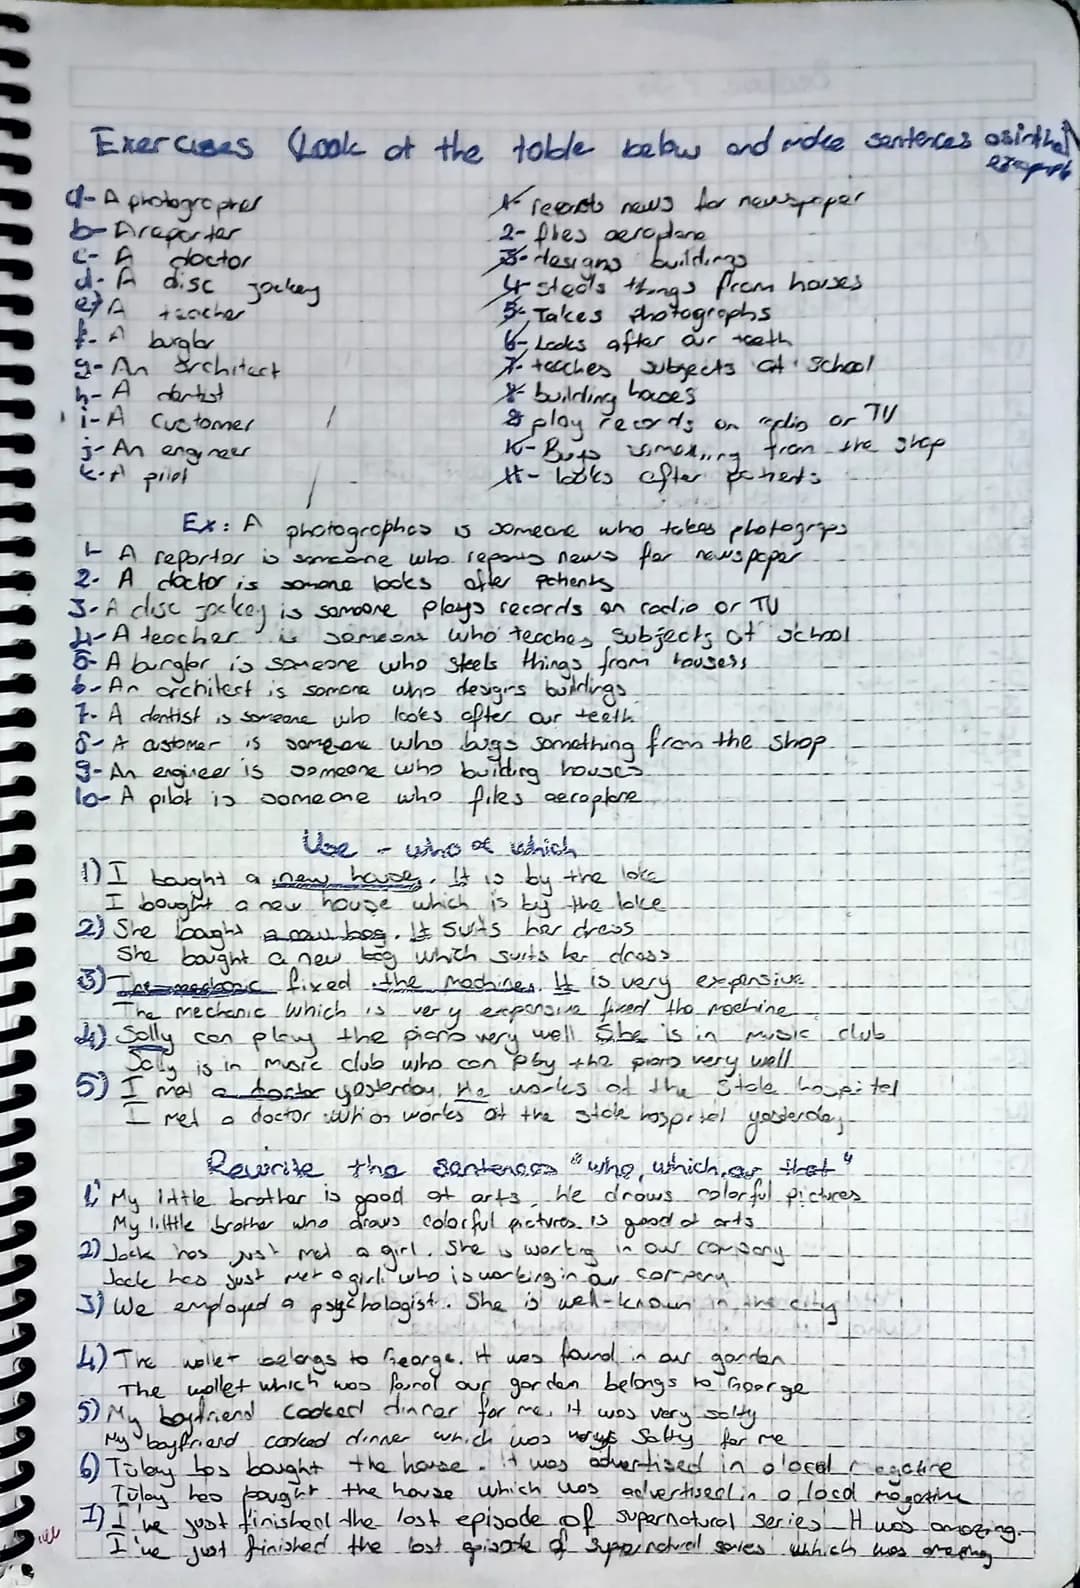 Exercises (Look at the table below and make sentences as in the example
a- A photographer
b- A reporter
c- A doctor
d- A disc jockey
e) A teacher
f- A burglar
g- An architect
h- A dentist
i- A customer
j- An engineer
k- A pilot
1- reports news for newspaper
2- flies aeroplane
3- designs buildings
4- steals things from houses
5- Takes photographs
6- Looks after our teeth
7- teaches subjects at school
8- building houses
9 play records on radio or TV
10- Buys something from the shop
11- looks after patients
Ex: A photographos is someone who takes photogrges
1- A reporter is someone who reports news for newspaper
2- A doctor is somone looks after patients
3- A disc jockey is someone plays records on radio or TV
4- A teacher is someone who teaches subjects at school
5- A burglar is someone who steels things from houses
6- An architect is somone who designs buildings
7- A dentist is someone who looks after our teeth
8- A customer is someone who buys something from the shop
9- An engineer is someone who building houses
10- A pilot is someone who flies aeroplane
Use - who or which
1) I bought a new house. It is by the lake
I bought a new house which is by the lake
2) She bought a new bag. It suits her dress
She bought a new bag which suits her dress
3) The mechanic fixed the machines. It is very expensive
The mechanic which is very expensive fixed the machine
4) Sally can play the piano very well She is in music club
Sally is in music club who can play the piano very well
5) I met a doctor yesterday. He works at the State hospital
I met a doctor who works at the state hospital yesterday
Rewrite the sentences "who, which, or that"
1) My little brother is good at arts. He draws colorful pictures
My little brother who draws colorful pictures is good at arts
2) Jack has just met a girl. She is working in our company
Jack has just met a girl who is working in our company
3) We employed a psychologist. She is well-known in the city
4) The wallet belongs to George. It was found in our garden
The wallet which was found our garden belongs to George
5) My boyfriend cooked dinner for me. It was very salty
My boyfriend cooked dinner which was very salty for me
6) Tülay has bought the house. It was advertised in a local magazine
Tülay has bought the house which was advertised in a local magazine
7) I've just finished the last episode of supernatural series It was amazing.
I've just finished the last episode of supernatural series which was amazing